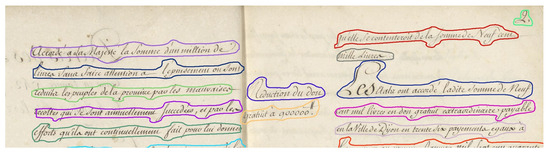 accordé a Sa Majesté la Somme d'un million de
livres Sans faire attention a l'épuisement ou Sont
reduits les peuples de la province par les mauvaises
recoltes qui se sont annuellement Succedées, et par les
efforts qu'ils ont continuellement fait pour lui donner
Réduction du don
gratuit a 900000.
2.
qu'elle se contenteroit de la Somme de Neuf cent
mille Livres
Les Etats ont accordé ladite Somme de Neuf
cent mil livres en don gratuit extraordinaire payable
en la Ville de Dijon en trente six payements egaux a